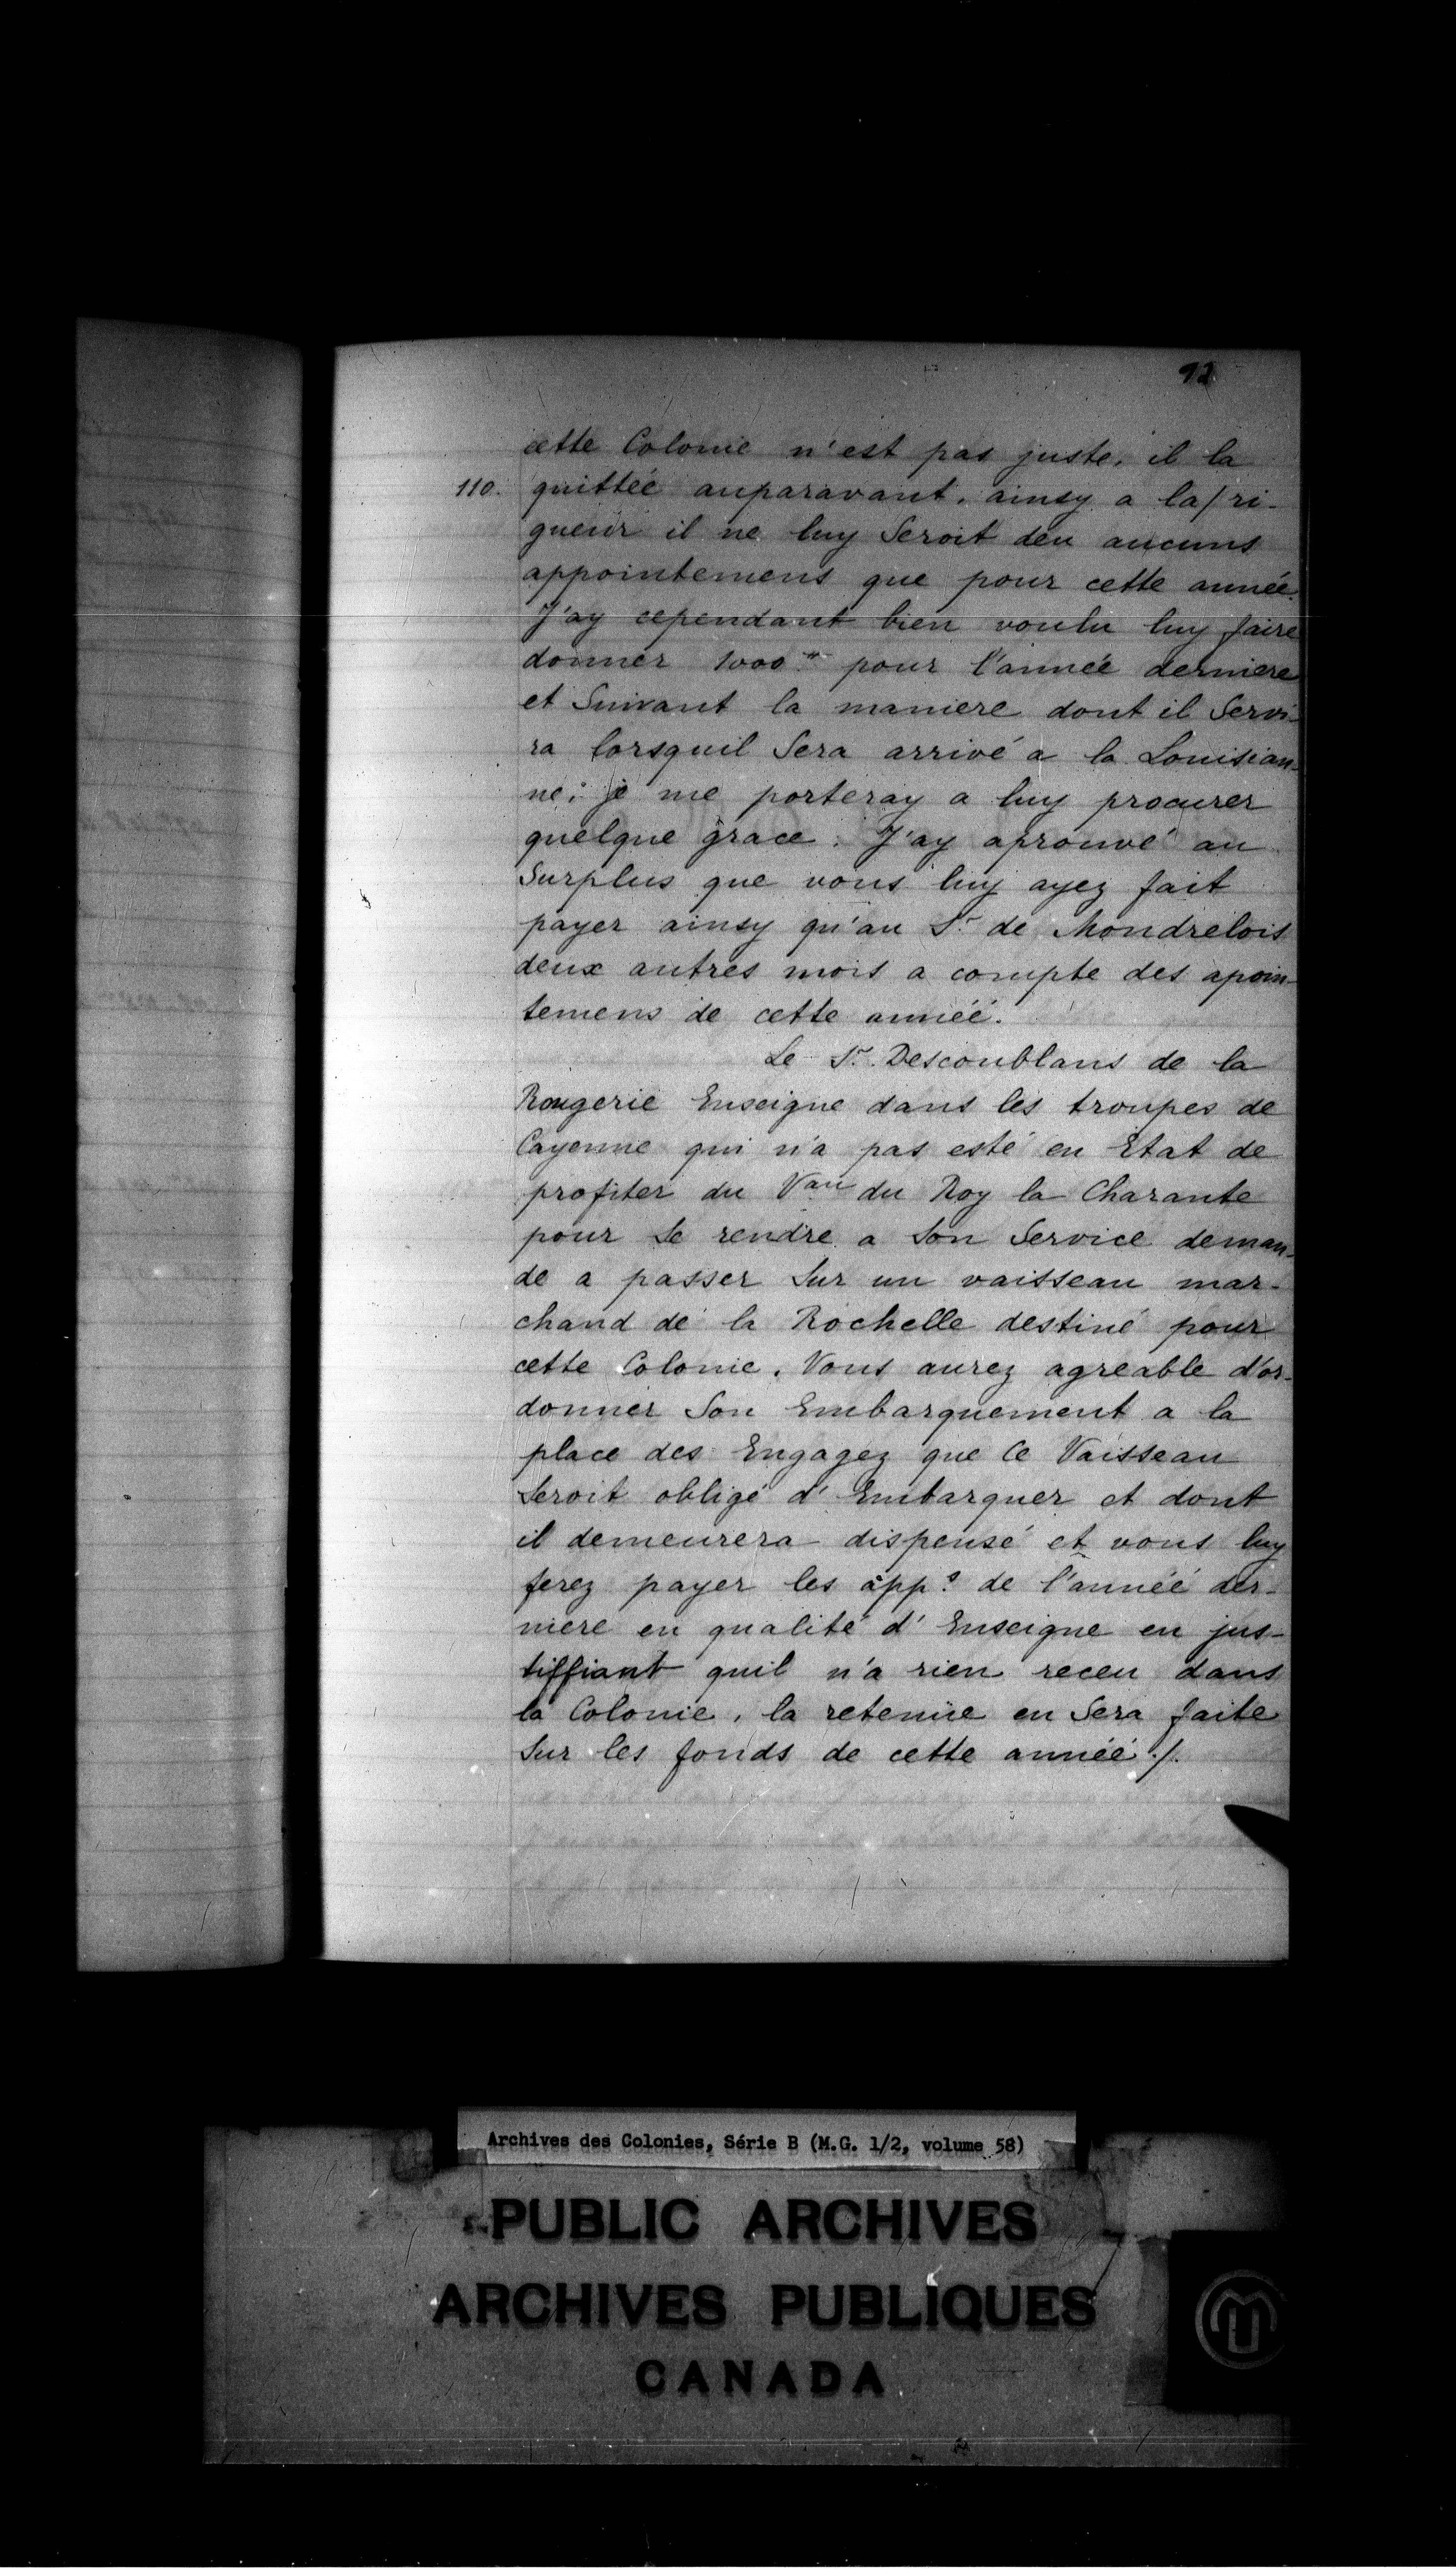 92
cette Colonie n'est pas juste. il la
110. quittée auparavant. ainsy a la/ri-
gueur il ne luy Seroit deu aucuns
appointemens que pour cette année.
J'ay cependant bien voulu luy faire
donner 1000tt pour l'année derniere
et Suivant la maniere dont il Servi-
ra lorsquil Sera arrivé a la Louisian-
ne; je me porteray a luy procurer
quelque grace. J'ay aprouvé au
Surplus que vous luy ayez fait
payer ainsy qu'au Sr de Mondrelois
deux autres mois a compte des apoin-
temens de cette année.
Le Sr. Descoublans de la
Rougerie Enseigne dans les troupes de
Cayenne qui n'a pas esté en Etat de
profiter du Vau du Roy la Charante
pour Se rendre a Son Service deman-
de a passer Sur un vaisseau mar-
chand de la Rochelle destiné pour
cette Colonie. Vous aurez agreable d'or-
donner Son Embarquement a la
place des Engagez que Ce Vaisseau
Seroit obligé d'Embarquer et dont
il demeurera dispensé et vous luy
ferez payer les apps. de l'année der-
niere en qualité d'Enseigne en jus-
tiffiant quil n'a rien receu dans
la Colonie, la retenüe en Sera faite
Sur les fonds de cette année ./.
Archives des Colonies, Série B (M.G. 1/2, volume 58)
PUBLIC ARCHIVES
ARCHIVES PUBLIQUES
CANADA